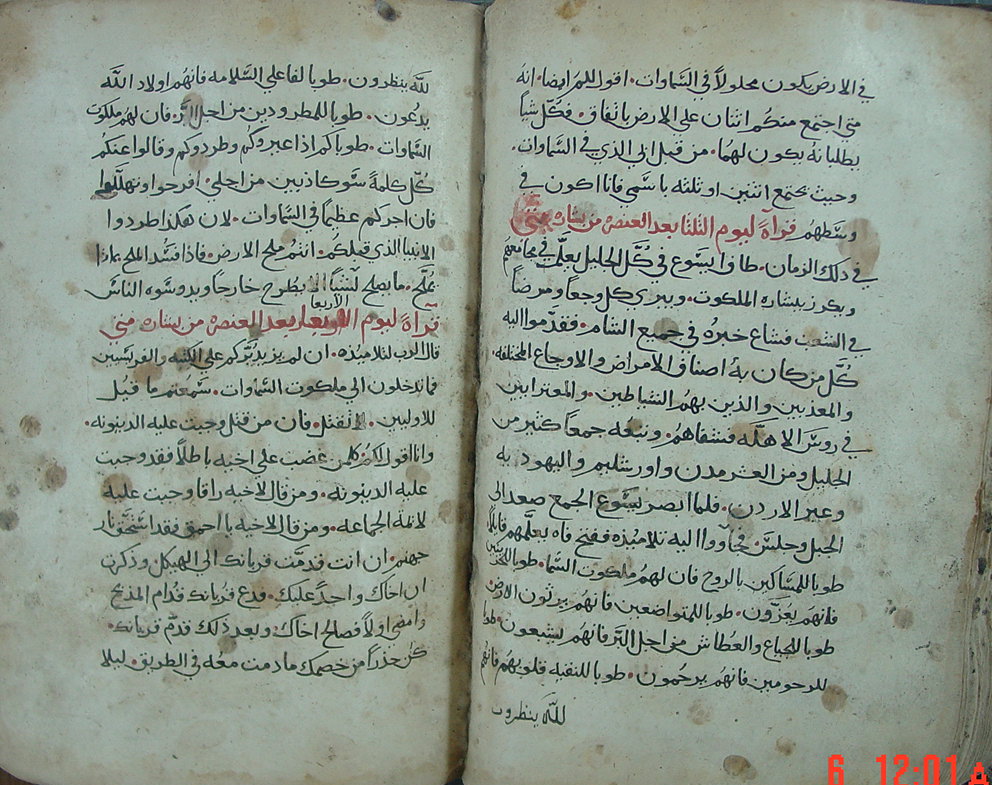 في الارض يكون محلولاً في السماوات. اقول لكم ايضا. انه
متي اجتمع منكم اثنان علي الارض باتفاق. فكل شياً
يطلبانه يكون لهما. من قبل ابي الذي في السماوات.
وحيث يجتمع اثنين او ثلثه باسمي فانا اكون في
وسطهم قرآة ليوم الثلثا بعد العنصره من بشارة متي
في دلك الزمان. طاف ايسوع في كل الجليل يعلم في مجامعهم
ويكرز ببشاره الملكوت. ويبري كل وجعاً ومرضاً
في الشعب فشاع خبره في جميع الشام. فقدموا اليه
كل من كان به اصناف الامراض والاوجاع المختلفه.
والمعذبين والذين بهم الشياطين. والمعترا بين
في روس الاهله فشفاهم. وتبعه جمعاً كثير من
الجليل ومن العشر مدن واورشليم واليهوديه
وعبر الاردن. فلما ابصر يسوع الجمع صعد الي
الجبل وجلس فجآووا اليه تلاميذه ففتح فاه يعلمهم قايلاً
طوبا للمساكين بالروح فان لهم ملكوت السما. طوبا للحزينين
فانهم يعزون. طوبا للمتواضعين فانهم يرثون الارض
طوبا للجياع والعطاش من اجل البر فانهم يشبعون. طوبا
للرحومين فانهم يرحمون. طوبا للنقيه قلوبهم فانهم
لله ينظرون
لله ينظرون. طوبا لفاعلي السلامه فانهم اولاد الله
يدعون. طوبا للمطرودين من اجل البر. فان لهم ملكوت
السماوات. طوباكم اذا عيروكم وطردوكم وقالوا عنكم
كل كلمة سو كاذبين من اجلي. افرحوا وتهللوا
فان اجركم عظيماً في السماوات. لان هكذا طردوا
الانبيا الذي قبلكم. انتم ملح الارض. فاذا فسد الملح بماذا
يملح. ما يصلح لشياً الا يطرح خارجاً ويدوسوه الناس
قرآة ليوم الاربعا بعد العنصره من بشارة متي
قال الرب لتلاميذه. ان لم يزيد بركم علي الكتبه والفريسيين
فما تدخلون الي ملكوت السماوات. سمعتم ما قيل
للاولين. لا تقتل. فان من قتل وجبت عليه الدينونه.
وانا اقول لكم كلمن غضب علي اخيه باطلاً فقد وجبت
عليه الدينونه. ومن قال لاخيه راقا وجبت عليه
لائمة الجماعه. ومن قال لاخيه يا احمق فقد استحق نار
جهنم. ان انت قدمت قربانك الي الهيكل وذكرت
ان اخاك واجدٌ عليك. فدع قربانك قدام المذبح
وامضي اولاً فصالح اخاك. وبعد ذلك قدم قربانك.
كن حذراً من خصمك ما دمت معه في الطريق. ليلا
6 12:01 A